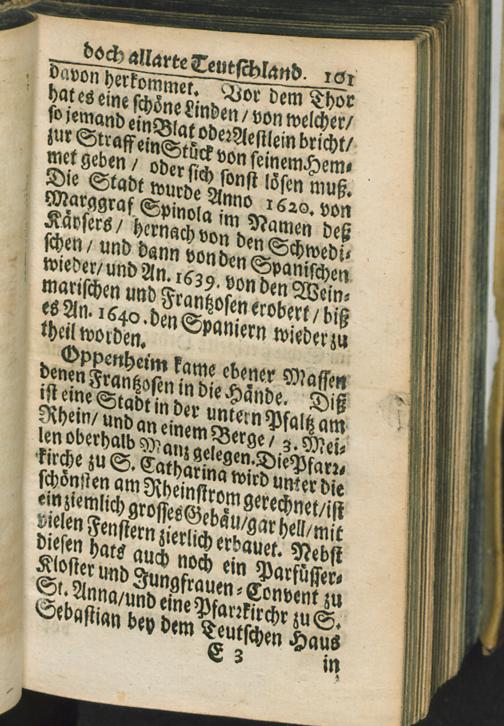 doch allarte Teutschland. 101
davon herkommet. Vor dem Thor
hat es eine schöne Linden / von welcher /
so jemand ein Blat oder Aestlein bricht /
zur Straff ein Stück von seinem Hem⸗
met geben / oder sich sonst lösen muß.
Die Stadt wurde Anno 1620. von
Marggraf Spinola im Namen deß
Käysers / hernach von den Schwedi⸗
schen / und dann von den Spanischen
wieder / und An. 1639. von den Wein⸗
marischen und Frantzosen erobert / biß
es An. 1640. den Spaniern wieder zu
theil worden.
Oppenheim kame ebener Massen
denen Frantzosen in die Hände. Diß
ist eine Stadt in der untern Pfaltz am
Rhein / und an einem Berge / 3. Mei⸗
len oberhalb Manz gelegen. Die Pfarr⸗
kirche zu S. Catharina wird unter die
schönsten am Rheinstrom gerechnet / ist
ein ziemlich grosses Gebäu / gar hell / mit
vielen Fenstern zierlich erbauet. Nebst
diesen hats auch noch ein Parfüsser⸗
Kloster und Jungfrauen⸗Convent zu
St. Anna / und eine Pfarrkirchr zu S.
Sebastian bey dem Teutschen Haus
E 3 in